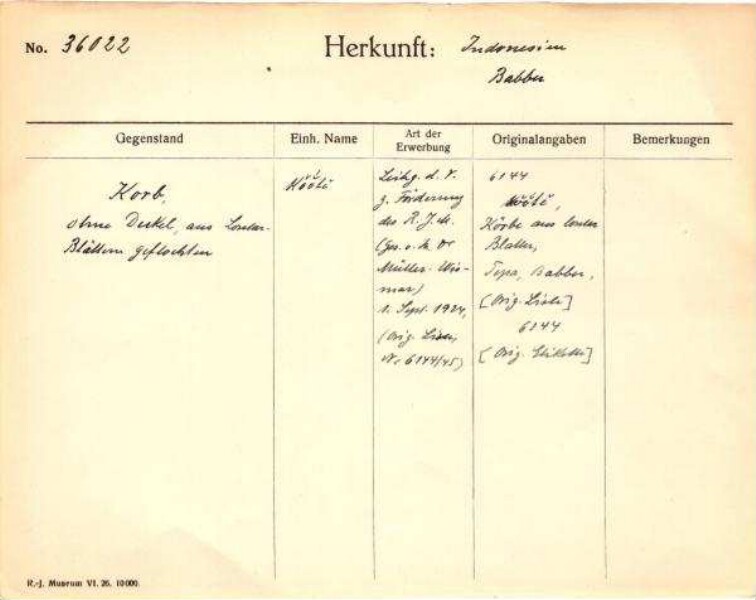 No. 36022
Herkunft: Indonesien
Babber
Gegenstand
Einh. Name
Art der Erwerbung
Originalangaben
Bemerkungen
Korb,
ohne Deckel, aus Lontar-
Blättern geflochten
Leihg. d. V.
z. Förderung
des R. J. M.
(Ges. v. H. Dr
Müller-Wis-
mar)
1. Sept. 1924,
(Orig. Listen
Nr 6144/45)
6144
Körbe aus lontar
Blätter,
Tepa, Babber,
[Orig. Liste]
6144
[Orig. Etikette]
R.-J. Museum VI. 26. 10000.